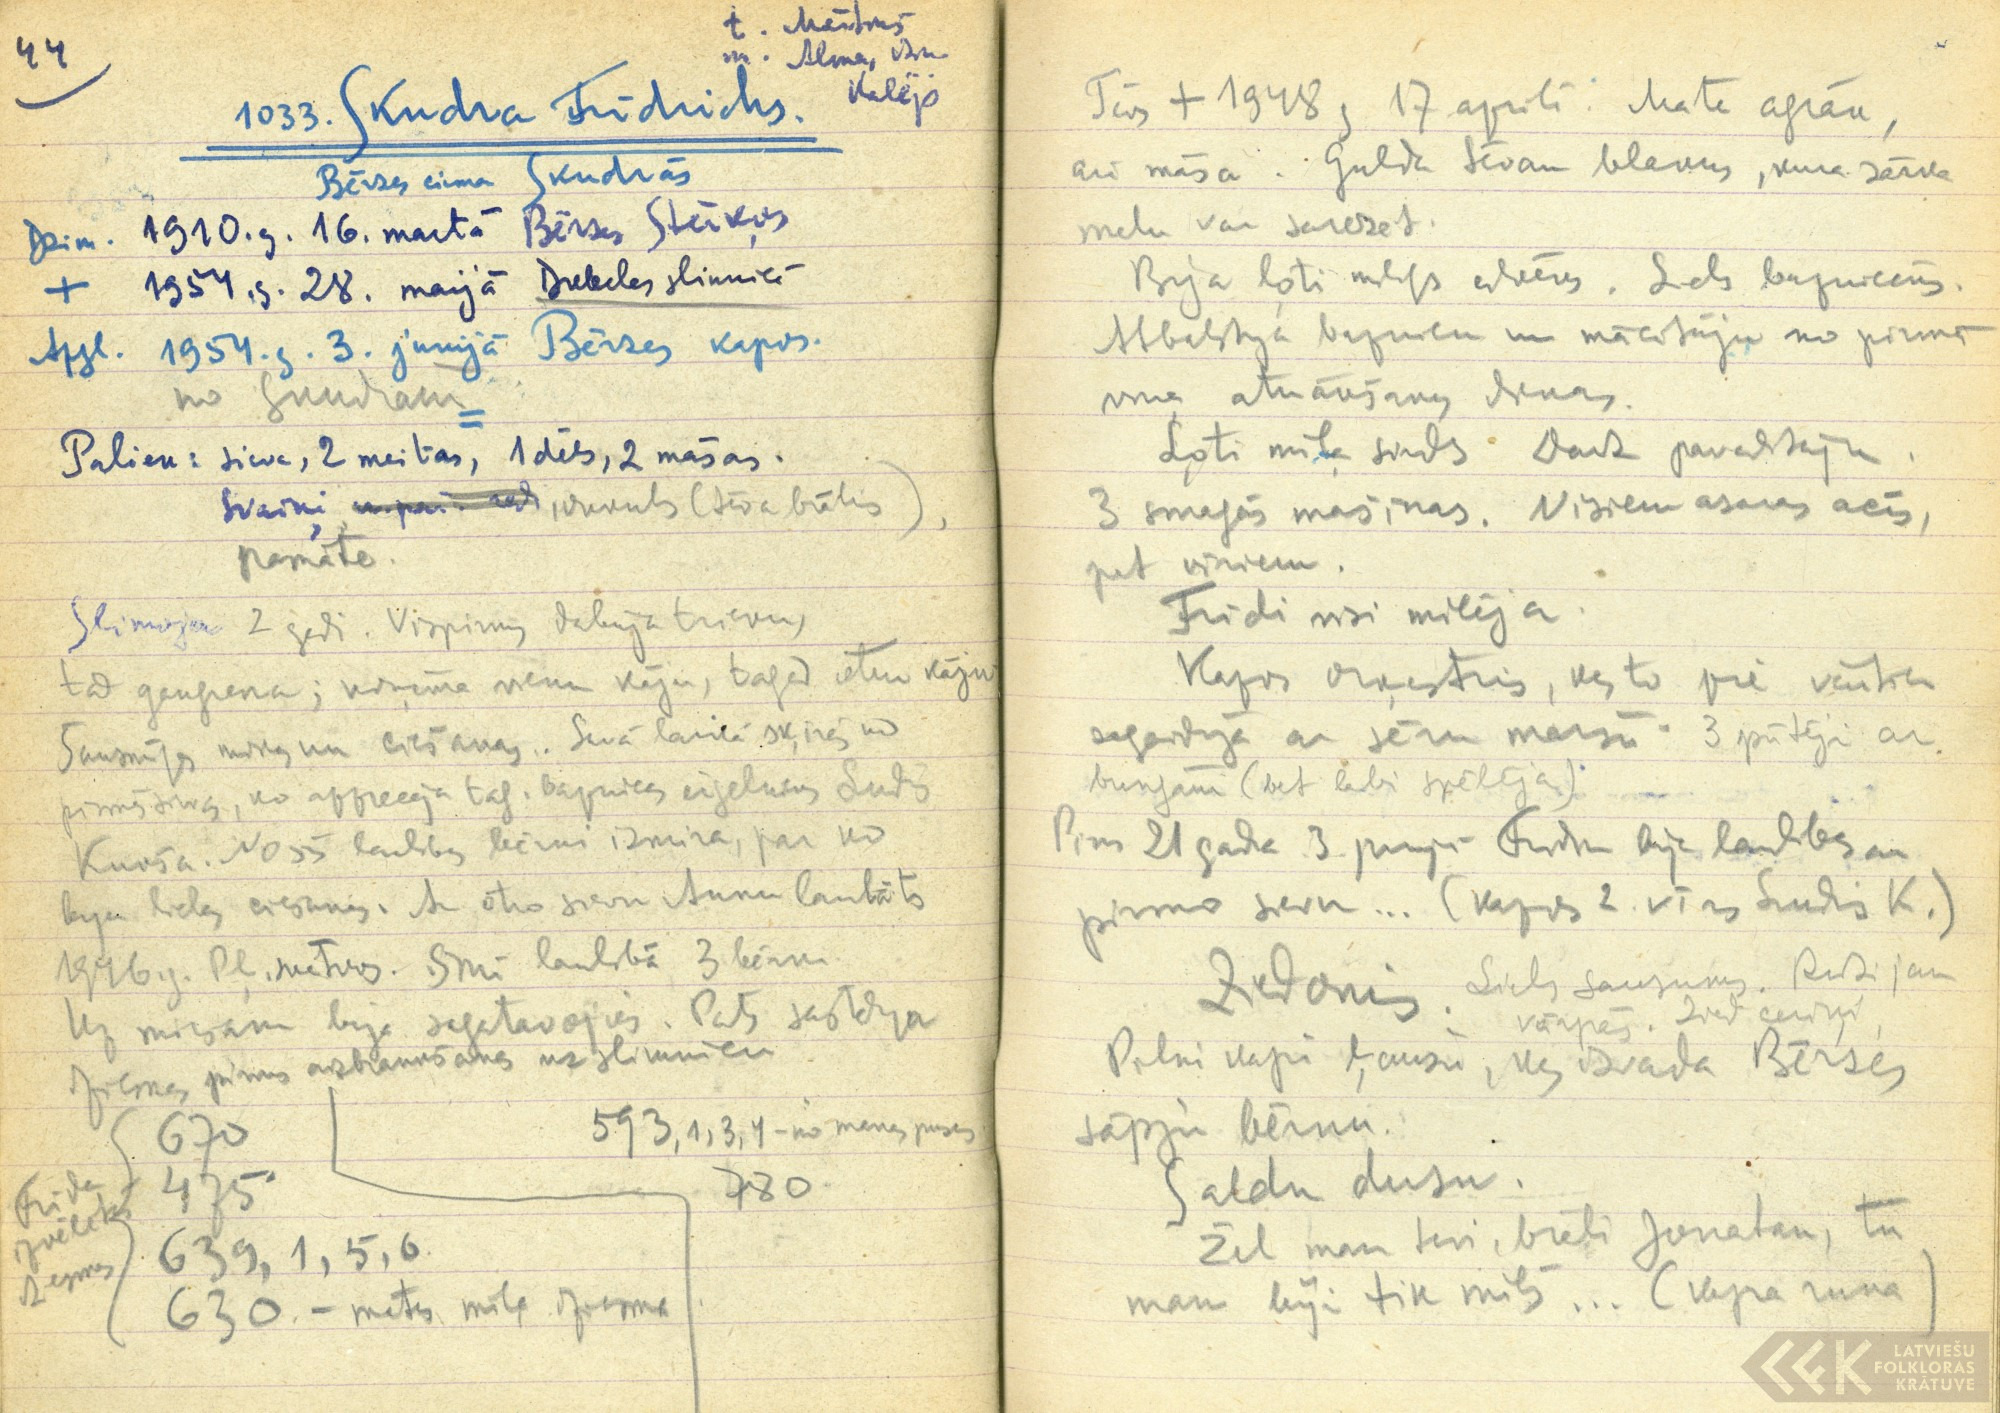 44
t. Mārtiņš
m. Alma, dzim.
Kalējs
1033. Skudra Frīdrichs.
Bērzes ciema Skudrās
Dzim. 1910.g. 16. martā Bērzes Stērķos
+ 1954.g. 28. maijā Dobeles slimnīcā
Apgl. 1954.g. 3. jūnijā Bērzes kapos.
no Skudrām
Paliek: sieva, 2 meitas, 1 dēls, 2 māsas.
Svaiņi, onkuls (tēva brālis),
pamāte.
Slimoja 2 gadi. Vispirms dabūja trieku,
tad gangrena; noņēma vienu kāju, tagad otru kāju
Šausmīgas mokas un ciešanas.. Savā laikā šķīrās no
pirmās sievas, ko apprecēja tag. baznīcas ērģelnieks Ludis
Kurša. No šīs laulības bērni izmira, par ko
bija lielas ciešanas. Ar otro sievu Annu laulāts
1946.g. Pļ. mētros. Šinī laulībā 3 bērni.
Uz miršanu bija sagatavojies. Pats sastādīja
dziesmas pirms aizbraukšanas uz slimnīcu
670
475
639, 1, 5, 6
630. - mātes mīļā dziesma
Frīda
izvēlētas
dziesmas
593, 1, 3, 4 - no manas puses
780
Tēvs + 1948.g. 17 aprīlī. Māte agrāk,
arī māsa. Gulda tēvam blakus, kura zārka
malu var saredzēt.
Bija ļoti mīļš cilvēks. Liels baznīcēns.
Atbalstīja baznīcu un mācītāju no pirmās
viņa atnākšanas dienas.
Ļoti mīļa sirds. Daudz pavadītāju.
3 smagās mašīnas. Visiem asaras acīs,
pat vīriem.
Frīdi visi mīlēja.
Kapos orķestris, kas to pie vārtiem
sagaidīja ar sēru maršu. 3 pūtēji ar
bungām (bet labi spēlēja).
Pirms 21 gada 3. jūnijā Frīdim bija laulības ar
pirmo sievu... (Kapos 2. vīrs Ludis K.)
Ziedonis. Liels sausums. Rudzi jau
vārpās. Zied ceriņi,
Pilni kapi ļaužu, kas izvada Bērzes
sāpju bērnu.
Saldu dusu.
Žēl man tevi, brāli Jonatan, tu
man biji tik mīļš ... (Kapa runa)
LATVIEŠU
FOLKLORAS
KRĀTUVE